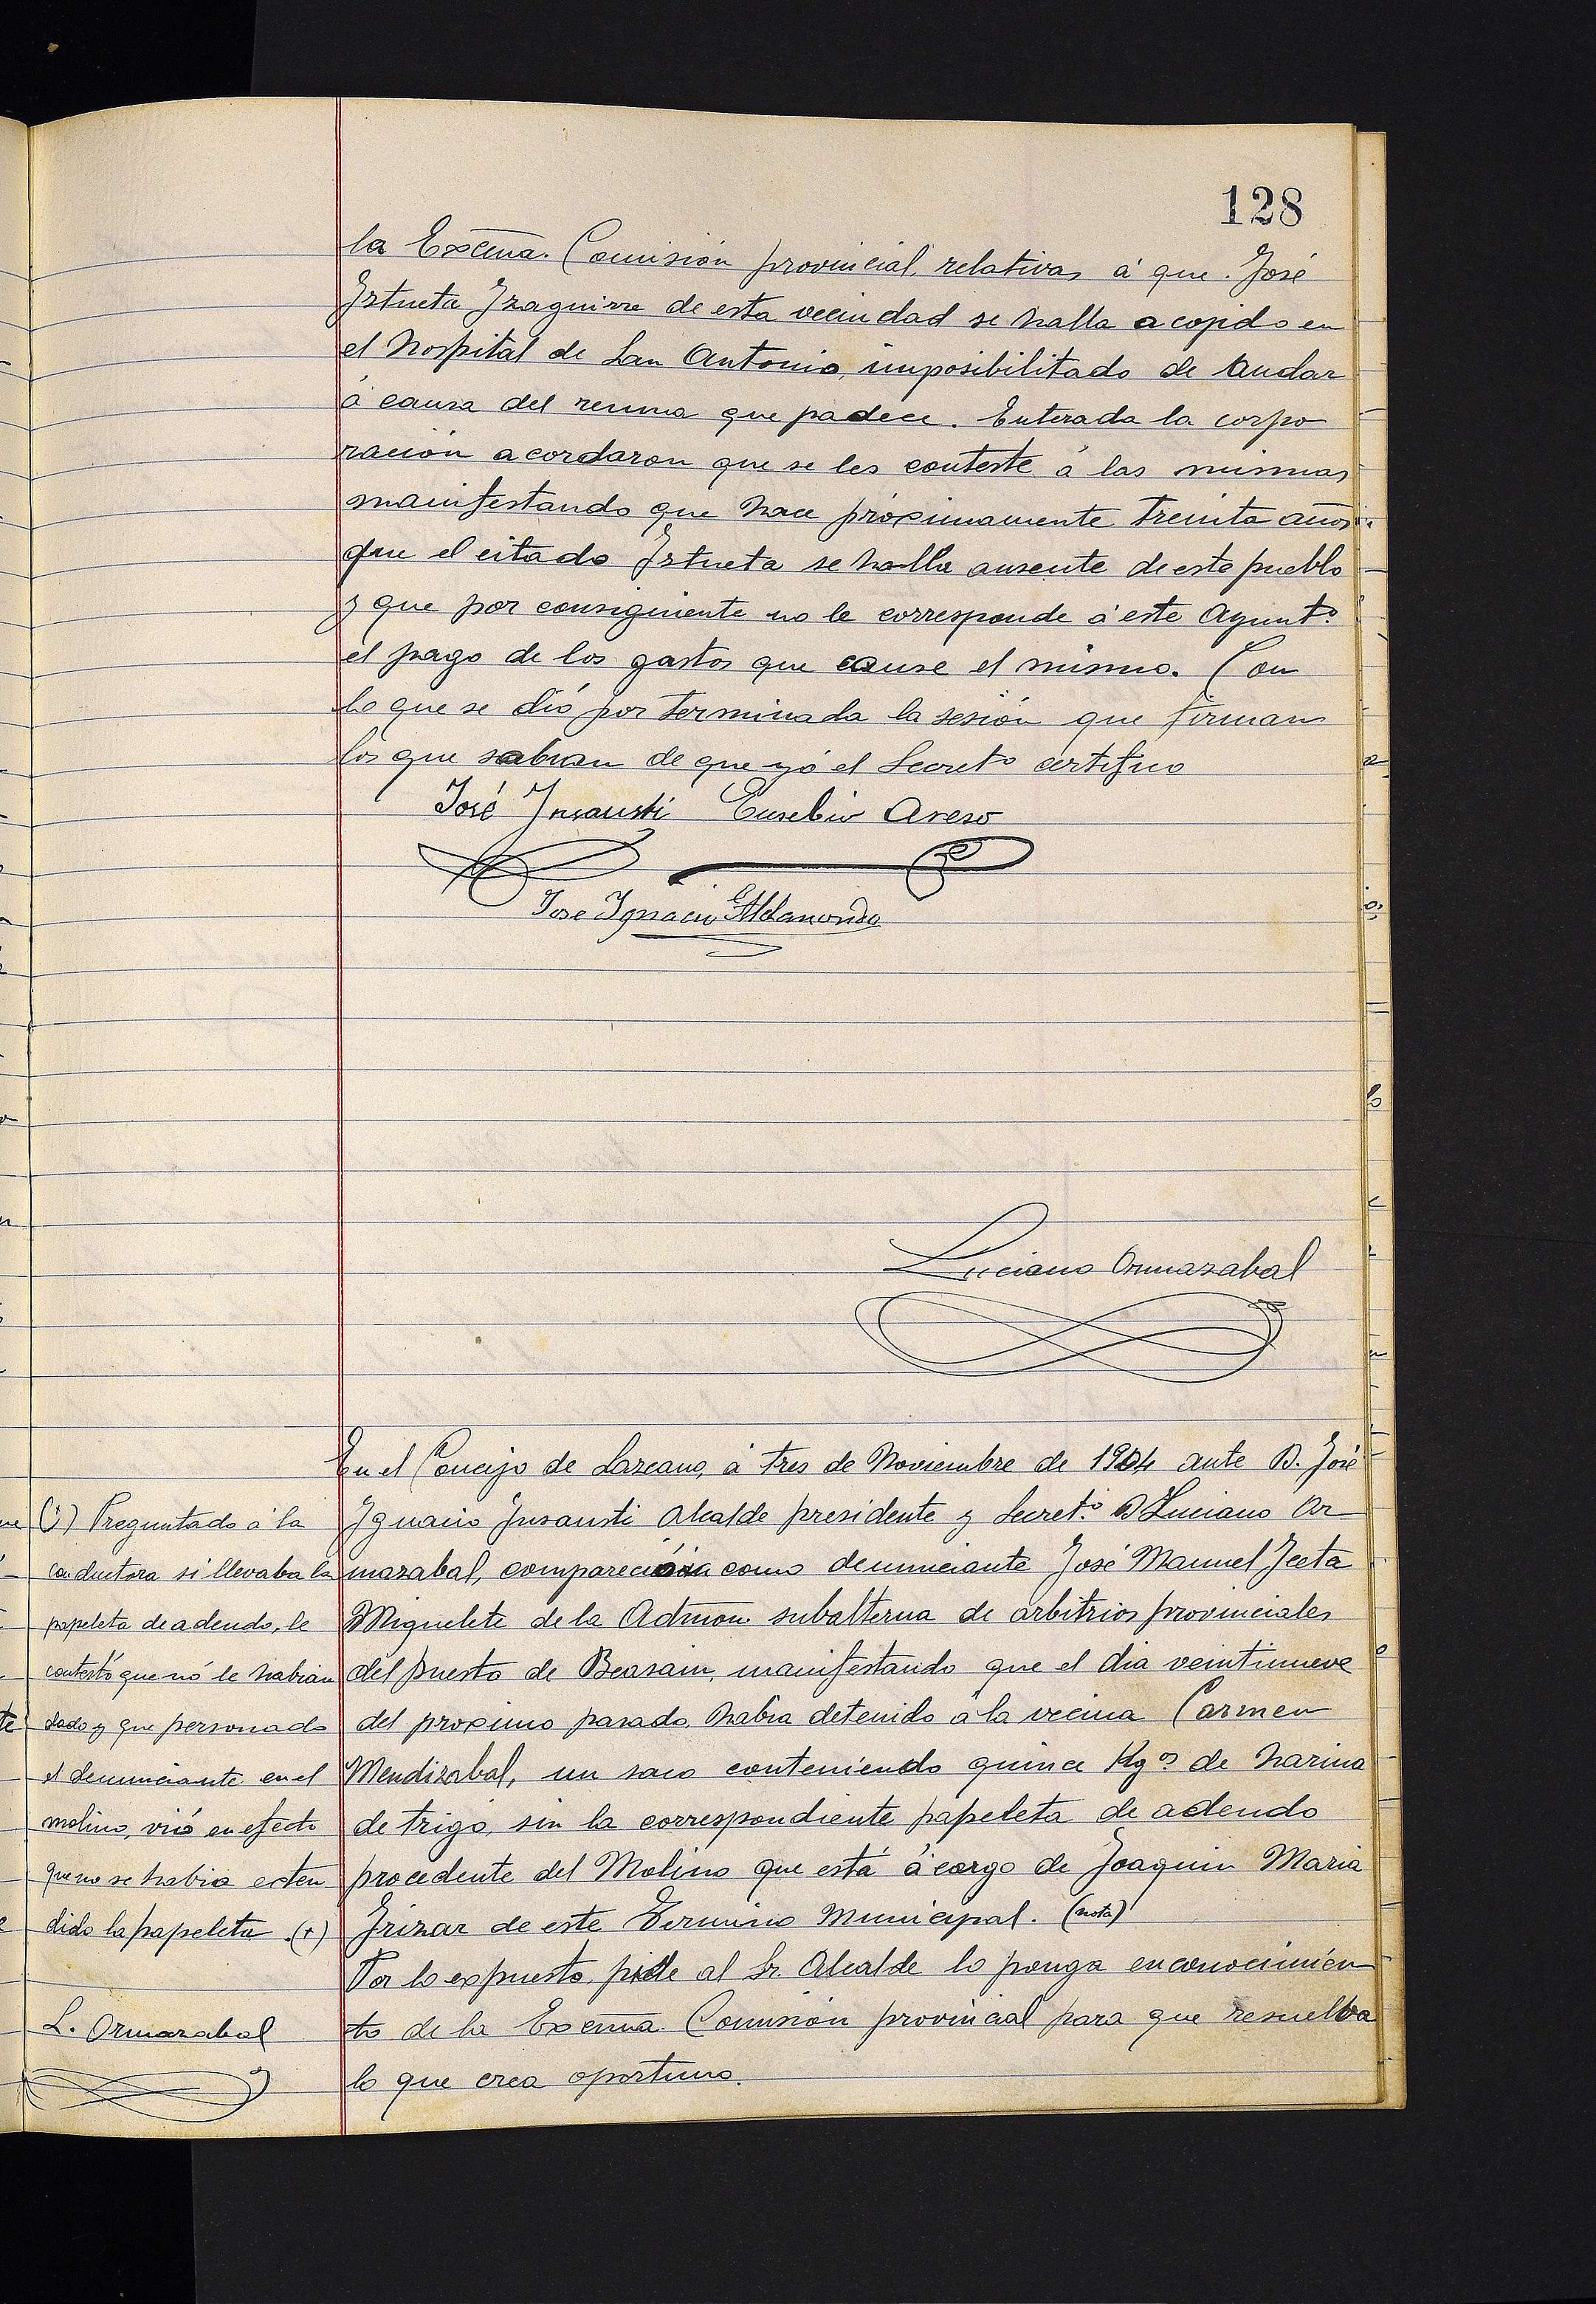 128
la Excma. Comisión provincial, relativas á que José
Iztueta Izaguirre de esta vecindad se halla acogido en
el hospital de San Antonio, imposibilitado de andar
á causa del reuma que padece. Enterada la corpo
ración acordaron que se les conteste á las mismas
manifestando que hace próximamente treinta años
que el citado Iztueta se halla ausente de este pueblo
y que por consiguiente no le corresponde á este Ayuntº
el pago de los gastos que cause el mismo. Con
lo que se dió por terminada la sesión que firman
los que sabian de que yó el Secretº certifico
José Insausti Eusebio Areso
Jose Ignacio Aldanondo
Luciano Ormazabal
En el Concejo de Lazcano, á tres de Noviembre de 1904 ante D. José
Ignacio Insausti Alcalde presidente y Secret.º D Luciano Or
mazabal, compareció como denunciante José Manuel Iceta
Miquelete de la Admon. subalterna de arbitrios provinciales
del puesto de Beasain, manifestando que el dia veintinueve
del proximo pasado, habia detenido á la vecina Carmen
Mendizabal, un saco conteniendo quince Kgºs de harina
de trigo, sin la correspondiente papeleta de adeudo
procedente del Molino que está á cargo de Joaquin Maria
Irizar de este Termino Municipal. (nota)
Por lo expuesto, pide al Sr. Alcalde lo ponga en conocimien
to de la Excma. Comisión provincial para que resuelva
lo que crea oportuno.
Preguntado á la
conductora si llevaba la
papeleta de adeudo, le
contestó que nó le habian
dado y que personado
el denunciante en el
molino, vió en efecto
que no se habia esten
dido la papeleta. (+)
L. Ormazabal